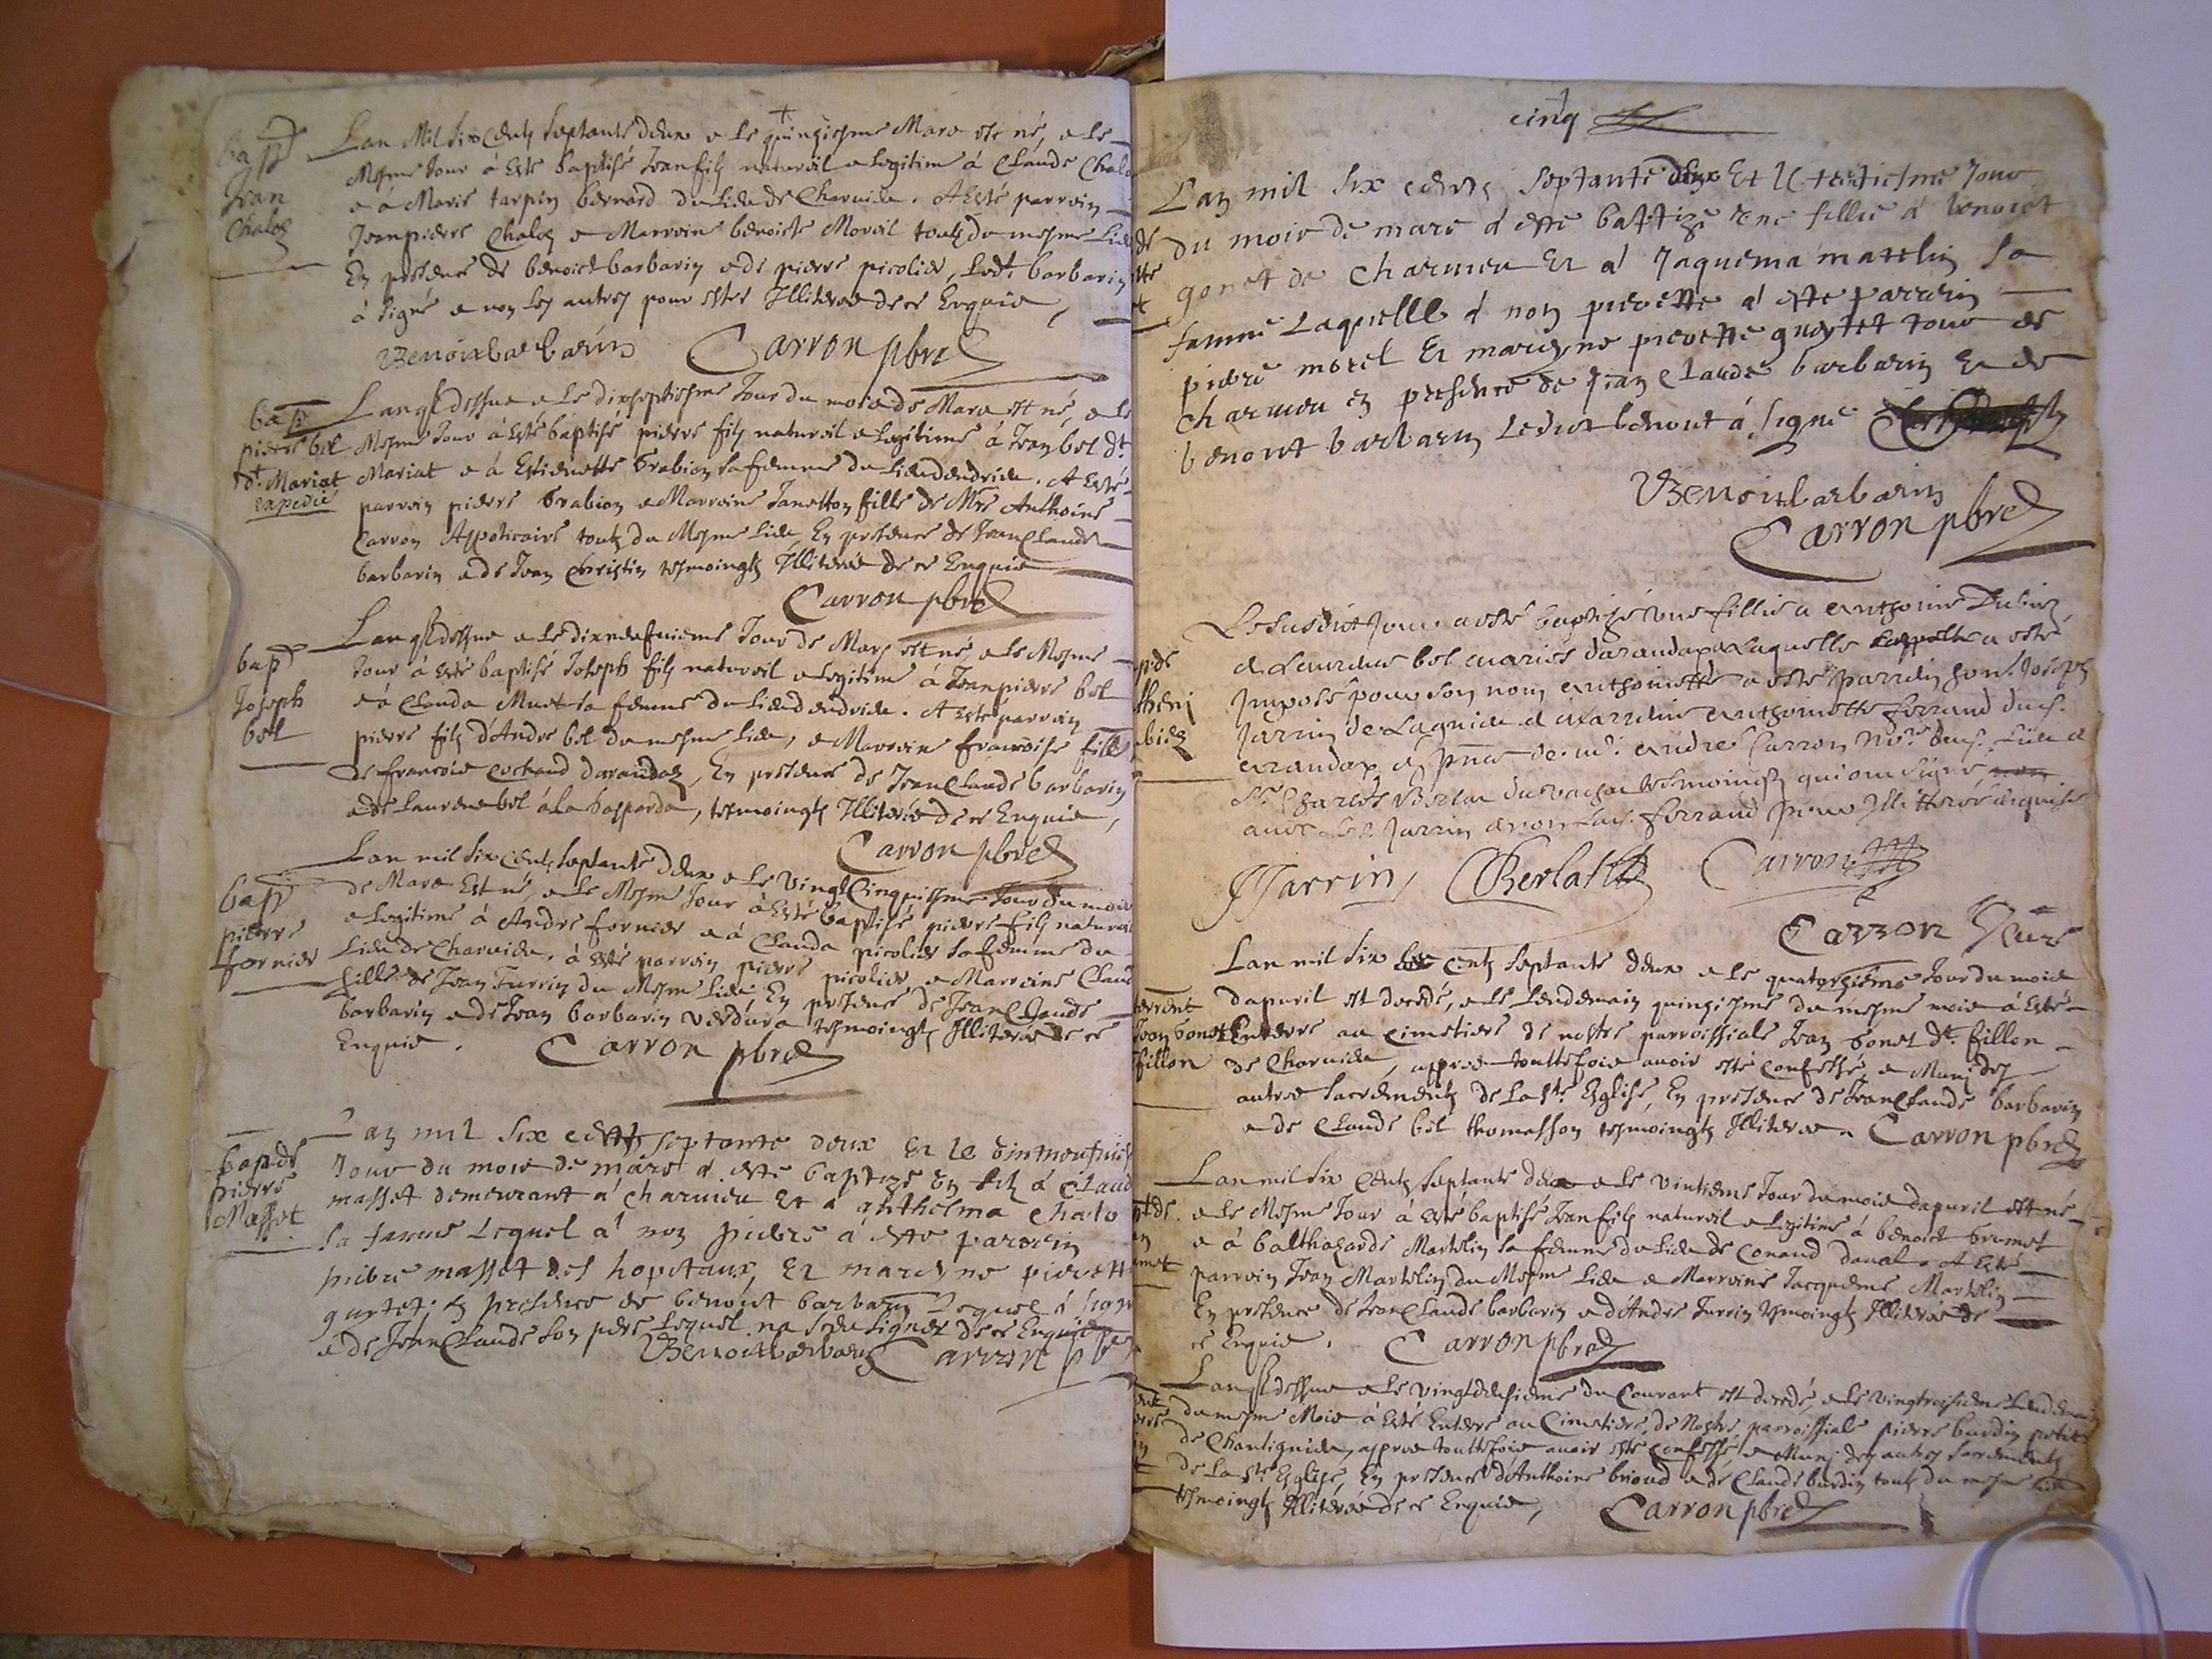 bap
Jean
Chaloz
Lan Mil six centz septante deux e le quinziesme Mars est né, e le
Mesme Jour à esté baptisé Jean filz naturel e legitim à Claude Chalo
e à Marie tarpin bernard du lieu de Charvieu. A esté parrein
Jeanpierre Chaloz e Marreine benoiste Moreil toutz du mesme lieu
En presence de benoict barbarin e de pierre picolier, Ledt. barbarin
à signé e non les autres pour estre Illiterés de ce Enquis
Benoict barbarin Carron pbre
bap
pierre bel
dt. Mariat
expedié
Lan susdessus e le dixseptiesme Jour du mois de Mars est né, e le
Mesme Jour à esté baptisé pierre filz naturel e legitime à Jean bel dt.
Mariat e à Estienette brabion sa femme du lieu dendrieu. A esté
parrein pierre brabion e Marreine Janetton fille de Mre Anthoine
Carron Appoticaire toutz du Mesme lieu, En presence de Jean Claude
barbarin e de Jean Christin tesmoingtz Illiterés de ce Enquis
Carron pbre
bap
Joseph
bel
Lan susdessus e le dixneufvieme Jour de Mars est né, e le Mesme
Jour à esté baptisé Joseph filz naturel e legitime à Jeanpierre bel
e à Clauda Muet sa femme du lieu dendrieu. A esté parrein
pierre filz d'Andre bel du mesme lieu, e Marreine françoise fille
de francois Cochand darandaz, En presence de Jean Claude barbarin
e de Laurent bel à la basparda, tesmoingtz Illiterés de ce Enquis,
Carron pbre
bap
pierre
fornier
Lan mil six centz septante deux e le vingtcinquiesme Jour du mois
de Mars Est né, e le Mesme Jour à Esté baptisé pierre filz naturel
e legitime à Andre fornier e à Clauda picolier sa femme du
Lieu de Charvieu. à esté parrein pierre picolier e Marreine Claud
fille de Jean Furrin du Mesme lieu En presence de Jean Claude
barbarin e de Jean barbarin verdura tesmoingtz Illiterés de ce
Enquis. Carron pbre
bap de
pierre
Masset
Lan mil six centz septante deux et le vintneufvies
Jour du mois de mars a este baptize un filz a Claud
masset demeurant a charvieu et a anthelma chalo
sa famme Lequel a non pierre a este parrein
piere masset des hopitaux et mareyne pierett
guytet: en presence de benoit barbarin Lequel a signe
e de Jean Claude son pere Lequel na sceu signer de ce Enquis
Benoict barbarin Carron pbre
cinq
Lan mil six centz septante deux Et le trentiesme Jour
du mois de mars a este baptize une fillie a benoict
gonet de charvieu Et a Jaquema mattelin sa
famme Laquelle a non pierette a este parrein
piere morel Et mareyne pierette guytet tous de
charvieu en presence de Jean Claude barbarin Et de
benoit barbarin Ledict benoit a signe
Benoict barbarin
Carron pbre
Le susdict Jour a esté baptizé une fillie a Anthoine Dubiez
& Laurence bel mariés darandax Laquelle a esté
Imposé pour son nom Anthoinette a esté parrein hon. Joseph
Jarrin de Lagnieu & Marreine Anthoinette ferrand dud.
arandax en pnce de md. Andre Carron Nore dud. Lieu &
Mr Charles Berlat tesmoingtz qui ont signé
avec led. Jarrin & non Lad. ferrand pour Illitterée enquise
J Jarrin CBerlat Carron
Carron Curé
Lan mil six centz septante deux e le quatorzieme Jour du mois
dapvril est decedé, e le Lendemain quinziesme du mesme mois à esté
Enterré au cimetiere de nostre parroissiale Jean bonet dt. fillon
de Charvieu, apprès touttefois avoir esté Confessé, e Muni des
autres Sacrementz de la Ste Esglise, En presence de Jean Claude barbarin
e de Claude bel thomasson tesmoingtz Illiterés. Carron pbre
Lan mil six centz septante deux e le vintieme Jour du mois dapvril est né
e le Mesme Jour à esté baptisé Jean filz naturel e legitime à benoict brunet
e à balthazarde Martelin sa femme du lieu de Conand daval. A Esté
parrein Jean Martelin du Mesme lieu e Marreine Jacqueme Martelin
En presence de Jean Claude barbarin e d'Andre Furrin tesmoingtz Illiterés de
ce Enquis. Carron pbre
Lan susdessus e le vingtdeusieme du Courant est decedé, e le vingtroisieme Lendemain
du mesme Mois à esté Enterré au Cimetiere de Nostre parroissiale pierre burdin petit
de Chantignieu, apprès touttefois avoir esté confessé e Muni des autres Sacrementz
de la Ste Esglise, En presence d'Anthoine briond e de Claude burdin toutz du mesme lieu
tesmoingtz Illiterés de ce Enquis, Carron pbre